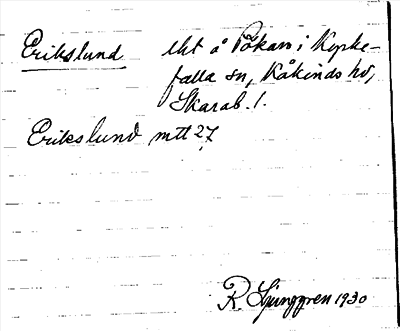 Erikslund lht å Pökan i Kyrke-
falla sn, Kåkinds hd,
Skarab. l.
Erikslund mtt 27
R. Ljunggren 1930